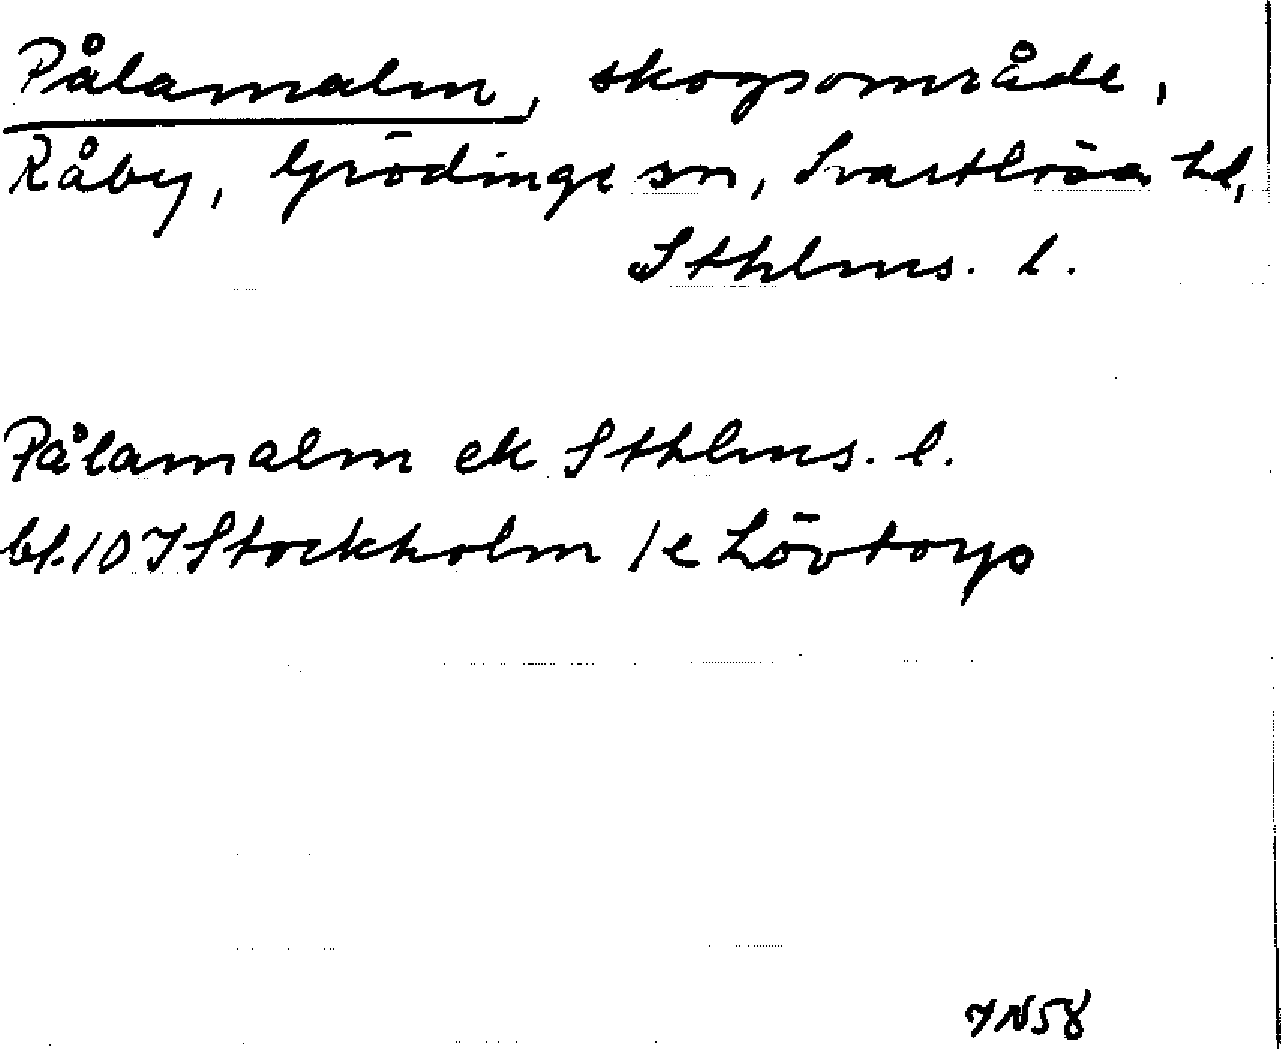 Pålamalm, skogsområde,
Råby, Grödinge sn, Svartlösa hd,
Sthlms. l.
Pålamalm ek Sthlms. l.
bl. 10 I Stockholm 1e Lövtorp
IN58